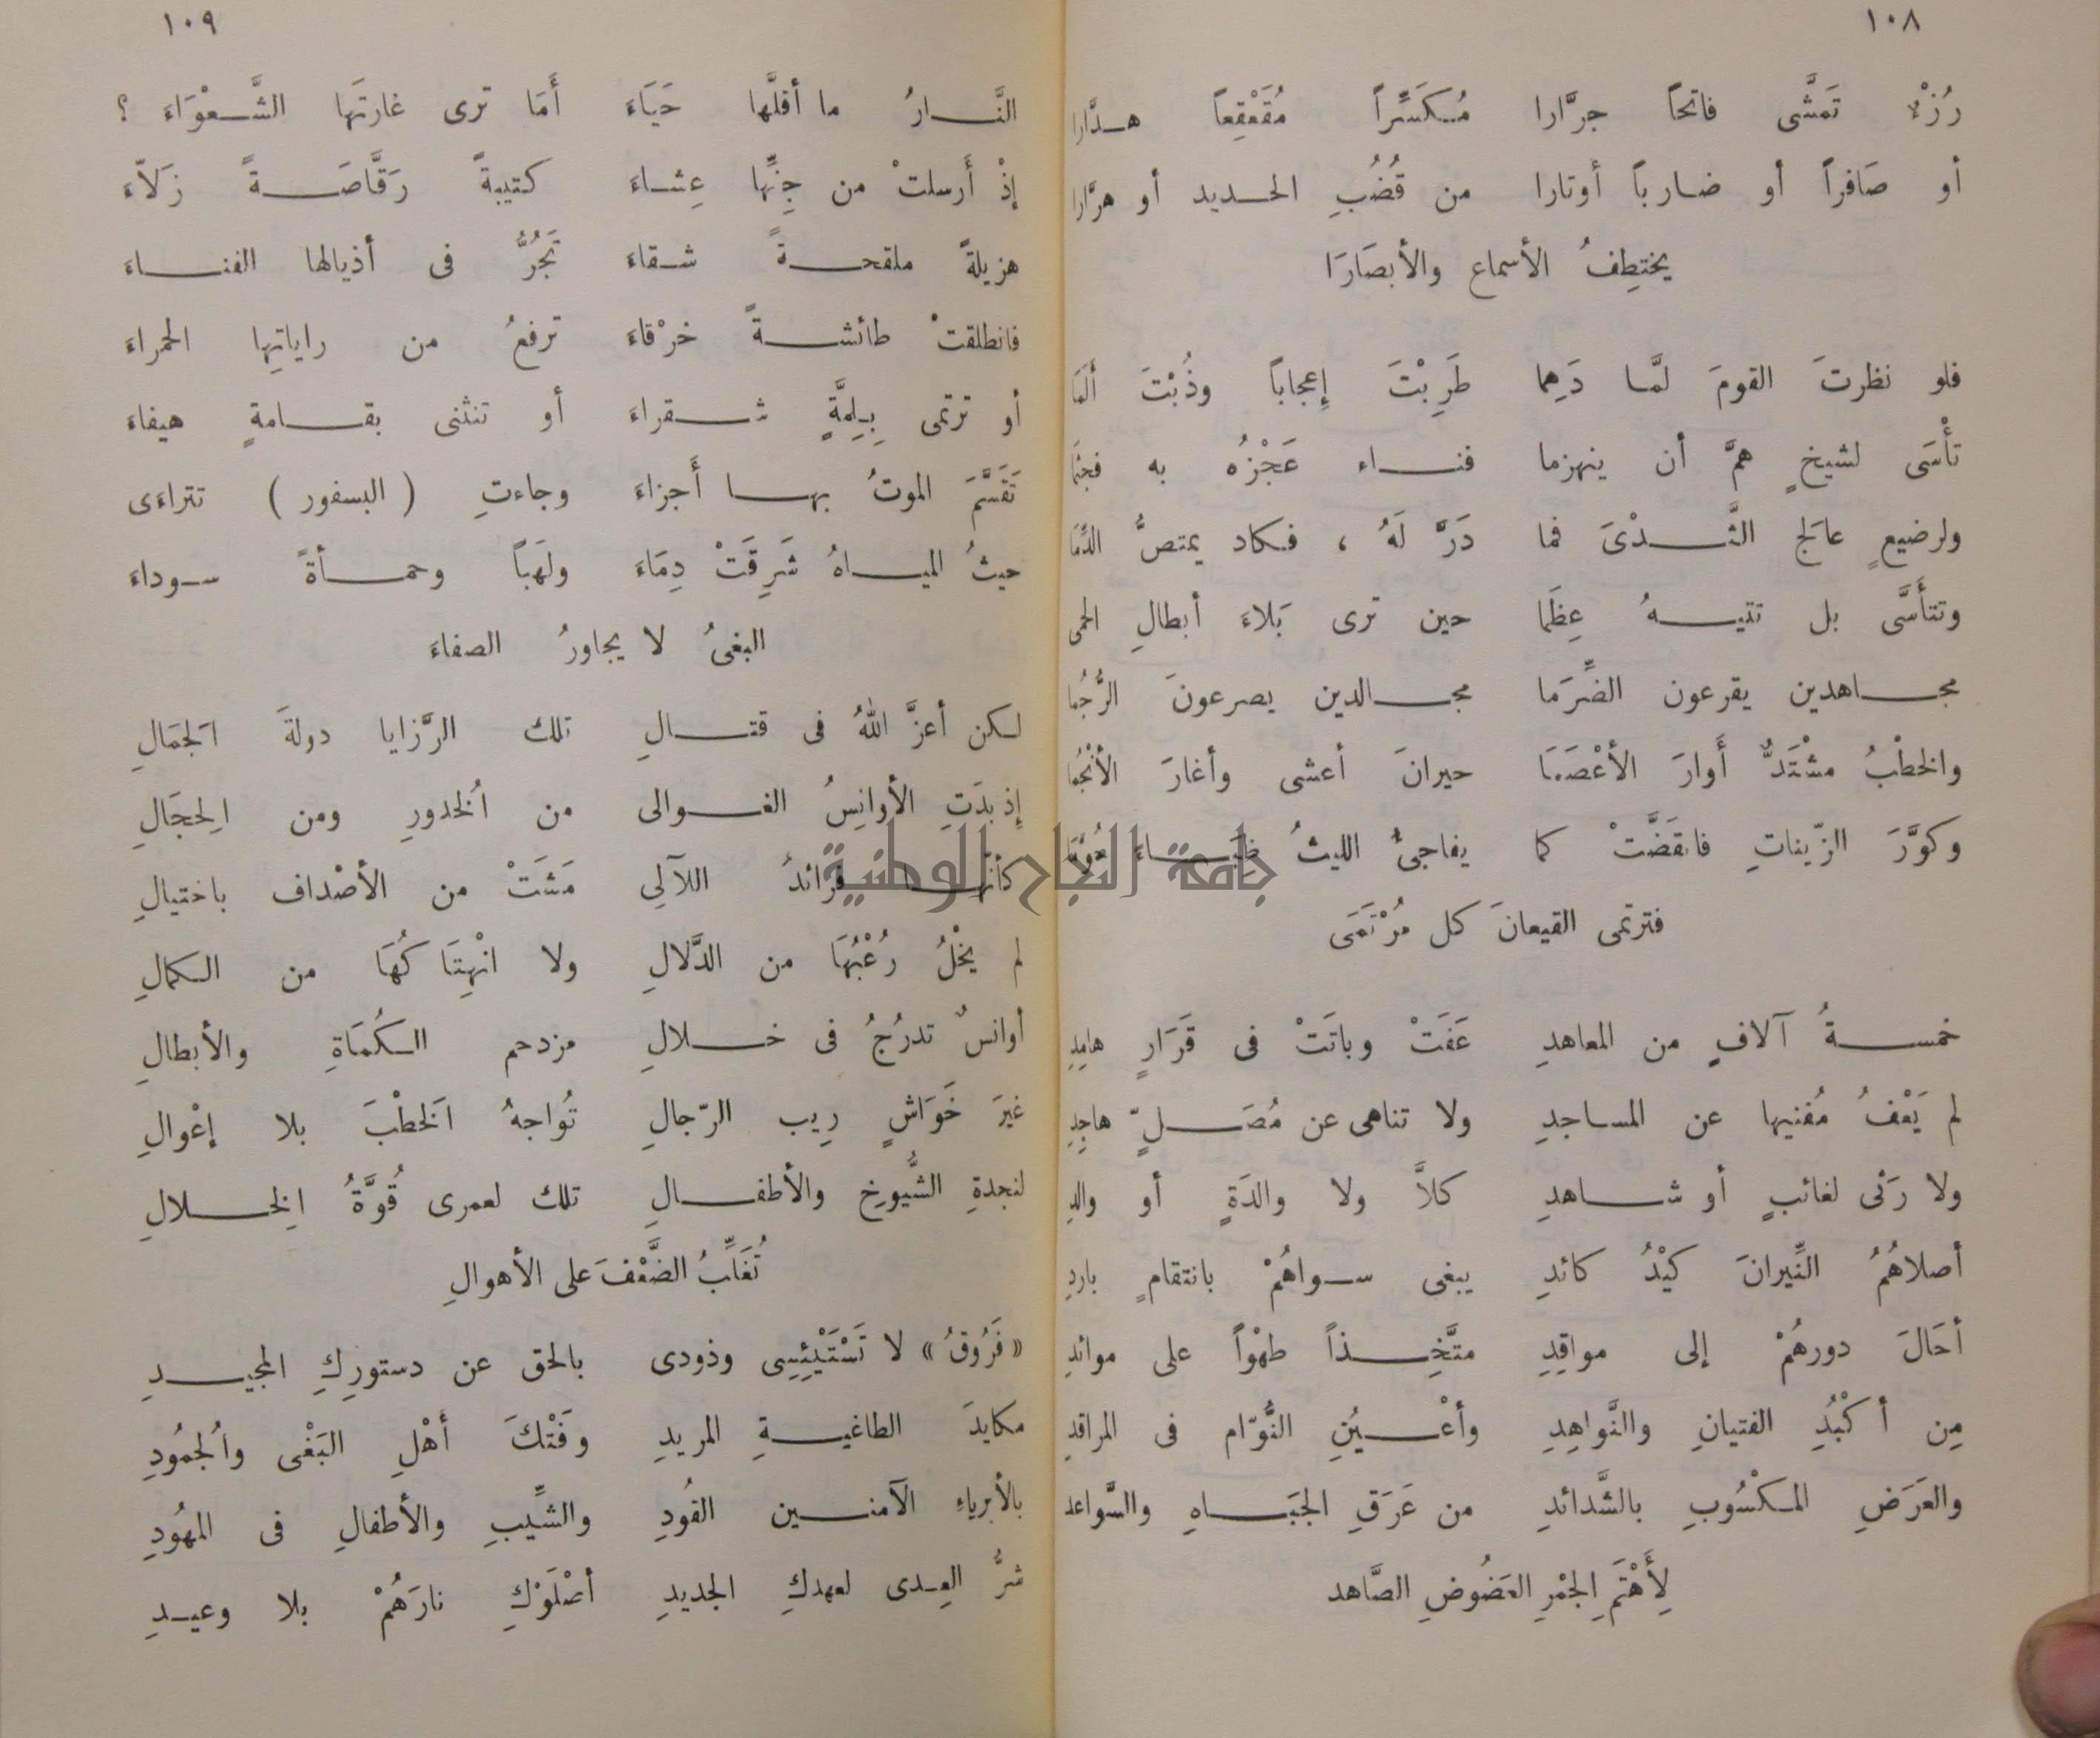 ١٠٨
رُزْءٌ تَمَشَّى فاتحاً جرَّارا مُكَسِّراً مُقَعْقِعاً هدَّارا
أو صَافراً أو ضارباً أوتارا من قُضُبِ الحديد أو هرَّارا
يختطِفُ الأسماع والأبصَارَا
فلو نظرتَ القومَ لمَّا دَهِما طَرِبْتَ إعجاباً وذُبْتَ ألَمَا
تأْسَى لشيخٍ همَّ أن ينهزما فناء عَجْزُه به فجثَمَا
ولرضيعٍ عالَج الثَّدْىَ فما دَرَّ لَهُ ، فكاد يمتصُّ الدِّمَا
وتتأَسَّى بل تتيهُ عِظَما حين ترى بَلاءَ أبطالِ الحمى
مجاهدين يقرعون الضِّرَما مجالدين يصرعونَ الرُّجُما
والخطْبُ مشْتَدٌّ أَوارَ الأعْصَمَا حيرانَ أعشى وأغارَ الأنْجُمَا
وكوَّرَ الزّيناتِ فانقَضَّتْ كما يفاجئُ الليثُ ظِبَاءَ حُوَّمَا
فترتمى القيعانَ كل مُرْتَمَى
خمسةُ آلافٍ من المعاهدِ عَفَتْ وباتَتْ فى قَرَارٍ هامِدِ
لم يَعْفُ مُفنيها عن المساجدِ ولا تناهى عن مُصَلٍّ هاجِدِ
ولا رَثَى لغائبٍ أو شاهدِ كلاَّ ولا والدَةٍ أو والدِ
أصلاهُمُ النِّيرانَ كيْدُ كائدِ يبغى سواهُمْ بانتقامٍ باردِ
أحَالَ دورهُمْ إلى مواقِدِ متَّخِذاً طهْواً على موائدِ
مِن أكْبُدِ الفتيانِ والنَّواهِدِ وأعْيُنِ النُّوّام فى المراقدِ
والعرَضِ المكْسُوبِ بالشَّدائدِ من عَرَقِ الجبَاهِ والسَّواعد
لِأَهْتَمِ الجمْرِ العَضُوضِ الصَّاهد
١٠٩
النَّارُ ما أقلَّها حَيَاءَ أَمَا ترى غارتَها الشَّعْوَاءَ ؟
إذْ أَرسلتْ من جِنِّها عِشاءَ كتيبةً رَقَّاصَةً زَلاّءَ
هزيلةً ملقحةً شقاءَ تَجُرُّ فى أذيالها الفناءَ
فانطلقتْ طائشةً خرْقاءَ ترفعُ من راياتِها الحمراءَ
أو ترتمى بِلِمَّةٍ شقراءَ أو تنثنى بقامةٍ هيفاءَ
تَقَسَّمَ الموتُ بها أَجزاءَ وجاءتِ ( البسفور ) تتراءَى
حيثُ المياهُ شَرِقَتْ دِمَاءَ ولَهَباً وحمأةً سوداءَ
البغىُ لا يجاورُ الصفاءَ
لكن أعزَّ اللهُ فى قتالِ تلك الرَّزايا دولةَ الَجمَالِ
إذ بدَتِ الأوانِسُ الغوالى من الُخدورِ ومن الِحجَالِ
كأنّها فرائدُ اللآلِى مَشَتْ من الأصْداف باختيالِ
لم يخْلُ رُعْبُهَا من الدَّلالِ ولا انْهِتَاكُهَا من الكمالِ
أوانسٌ تدرُجُ فى خلالِ مزدحم الكُمَاةِ والأبطالِ
غيرَ خَوَاشٍ رِيب الرّجالِ تُواجهُ الَخطْبَ بلا إعْوالِ
لنجدةِ الشُّيوخِ والأطفالِ تلك لعمرى قُوَّةُ الِخلالِ
تُغَلِّبُ الضَّعْفَ على الأهوالِ
« فَرُوقُ » لا تَسْتَيْئِسِى وذودى بالحق عن دستورِكِ المجيدِ
مكايدَ الطاغيةِ المريدِ وَفَتْكَ أَهْلِ البَغْى والُجمُودِ
بالأبرياءِ الآمنين القُودِ والشِّيبِ والأطفالِ فى المهُودِ
شرُّ العِدى لعهدكِ الجديدِ أصْلَوْكِ نارَهُمْ بلا وعيدِ
جامعة النجاح الوطنية